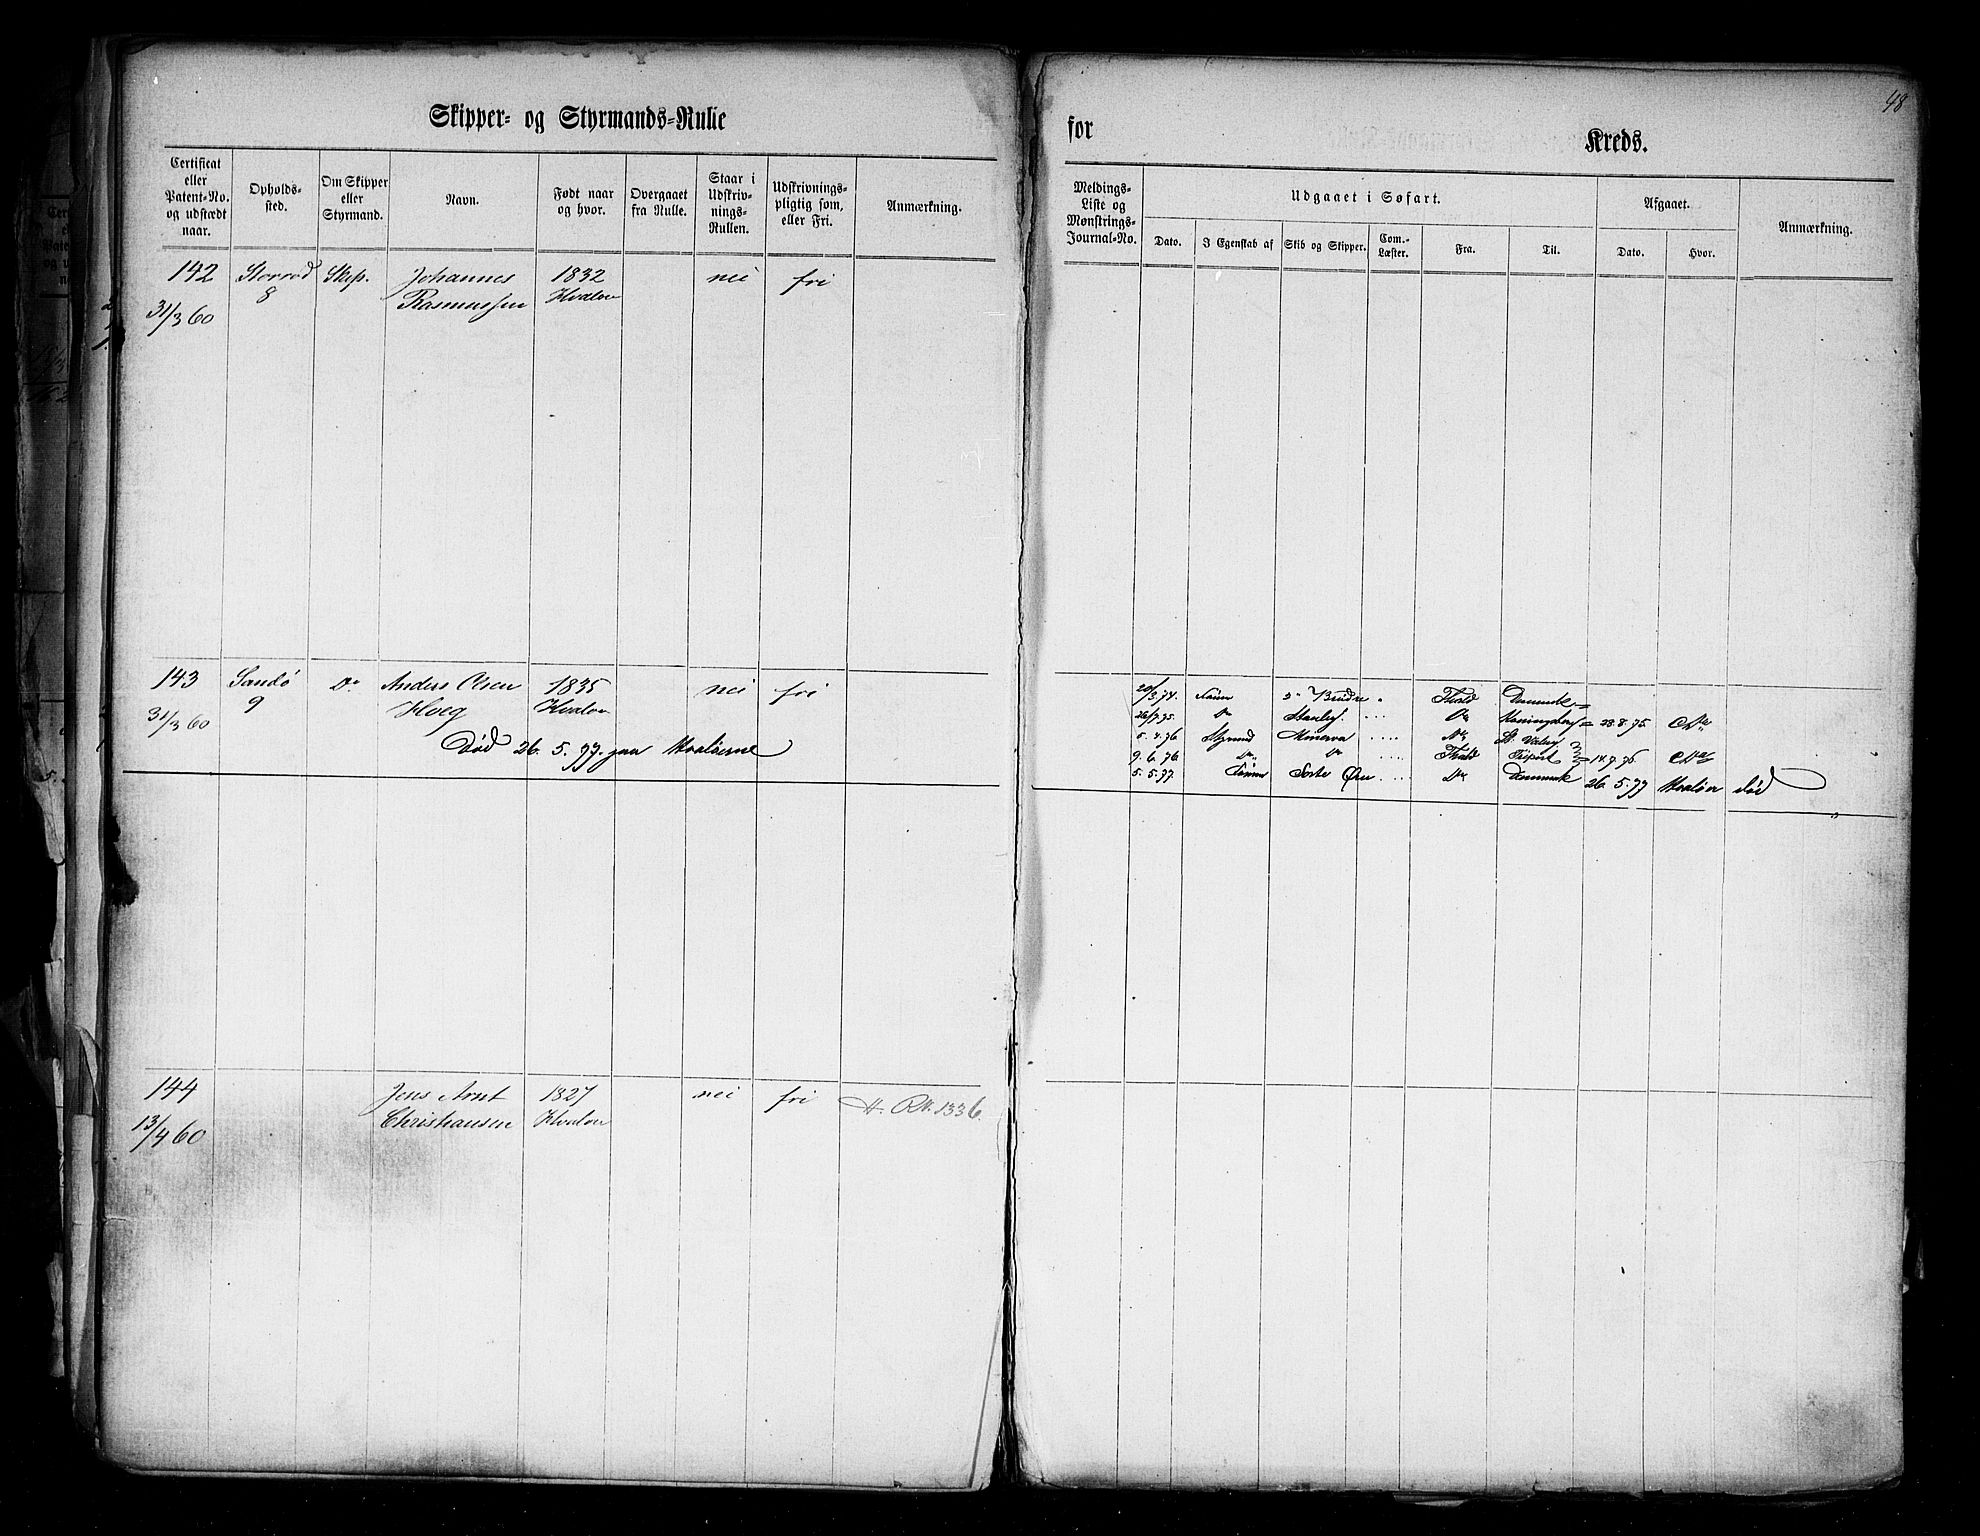 48
Skipper- og Styrmands-Rulle
for
Kreds.
Certificat eller Patent-No. og udstædt naar.
Opholds-sted.
Om Skipper eller Styrmand.
Navn.
Født naar og hvor.
Overgaaet fra Rulle.
Staar i Udskriv-nings-Rullen.
Udskrivnings-pligtig som, eller Fri.
Anmærkning.
Meldings-Liste og Mønstrings-Journal-No.
Udgaaet i Søfart.
Dato.
I Egenskab af
Skib og Skipper.
Com.-Læster.
Fra.
Til.
Afgaaet.
Dato.
Hvor.
Anmærkning.
142 Storrød Skip. Johannes 1832 nei fri
31/3 60 8 Rasmussen Hvaløer
143 Sandø Do Anders Olsen 1835 nei fri
31/3 60 9 Hoeg Hvaløer
Død 26. 5. 77. paa Hvaløerne
20/3.74. 5 Brödre Danmark
26/7.75. Do Do = 23.8.75.
5.4.76 Styrmd Minerva
9.6.76 Do Do = 14.9.76
5.5.77 Sorte Ørn Do Danmark 26. 5. 77 Hvaløer død
144 Jens Arnt 1827 nei fri H. R. 1336.
13/4 60 Christiansen Hvaløer